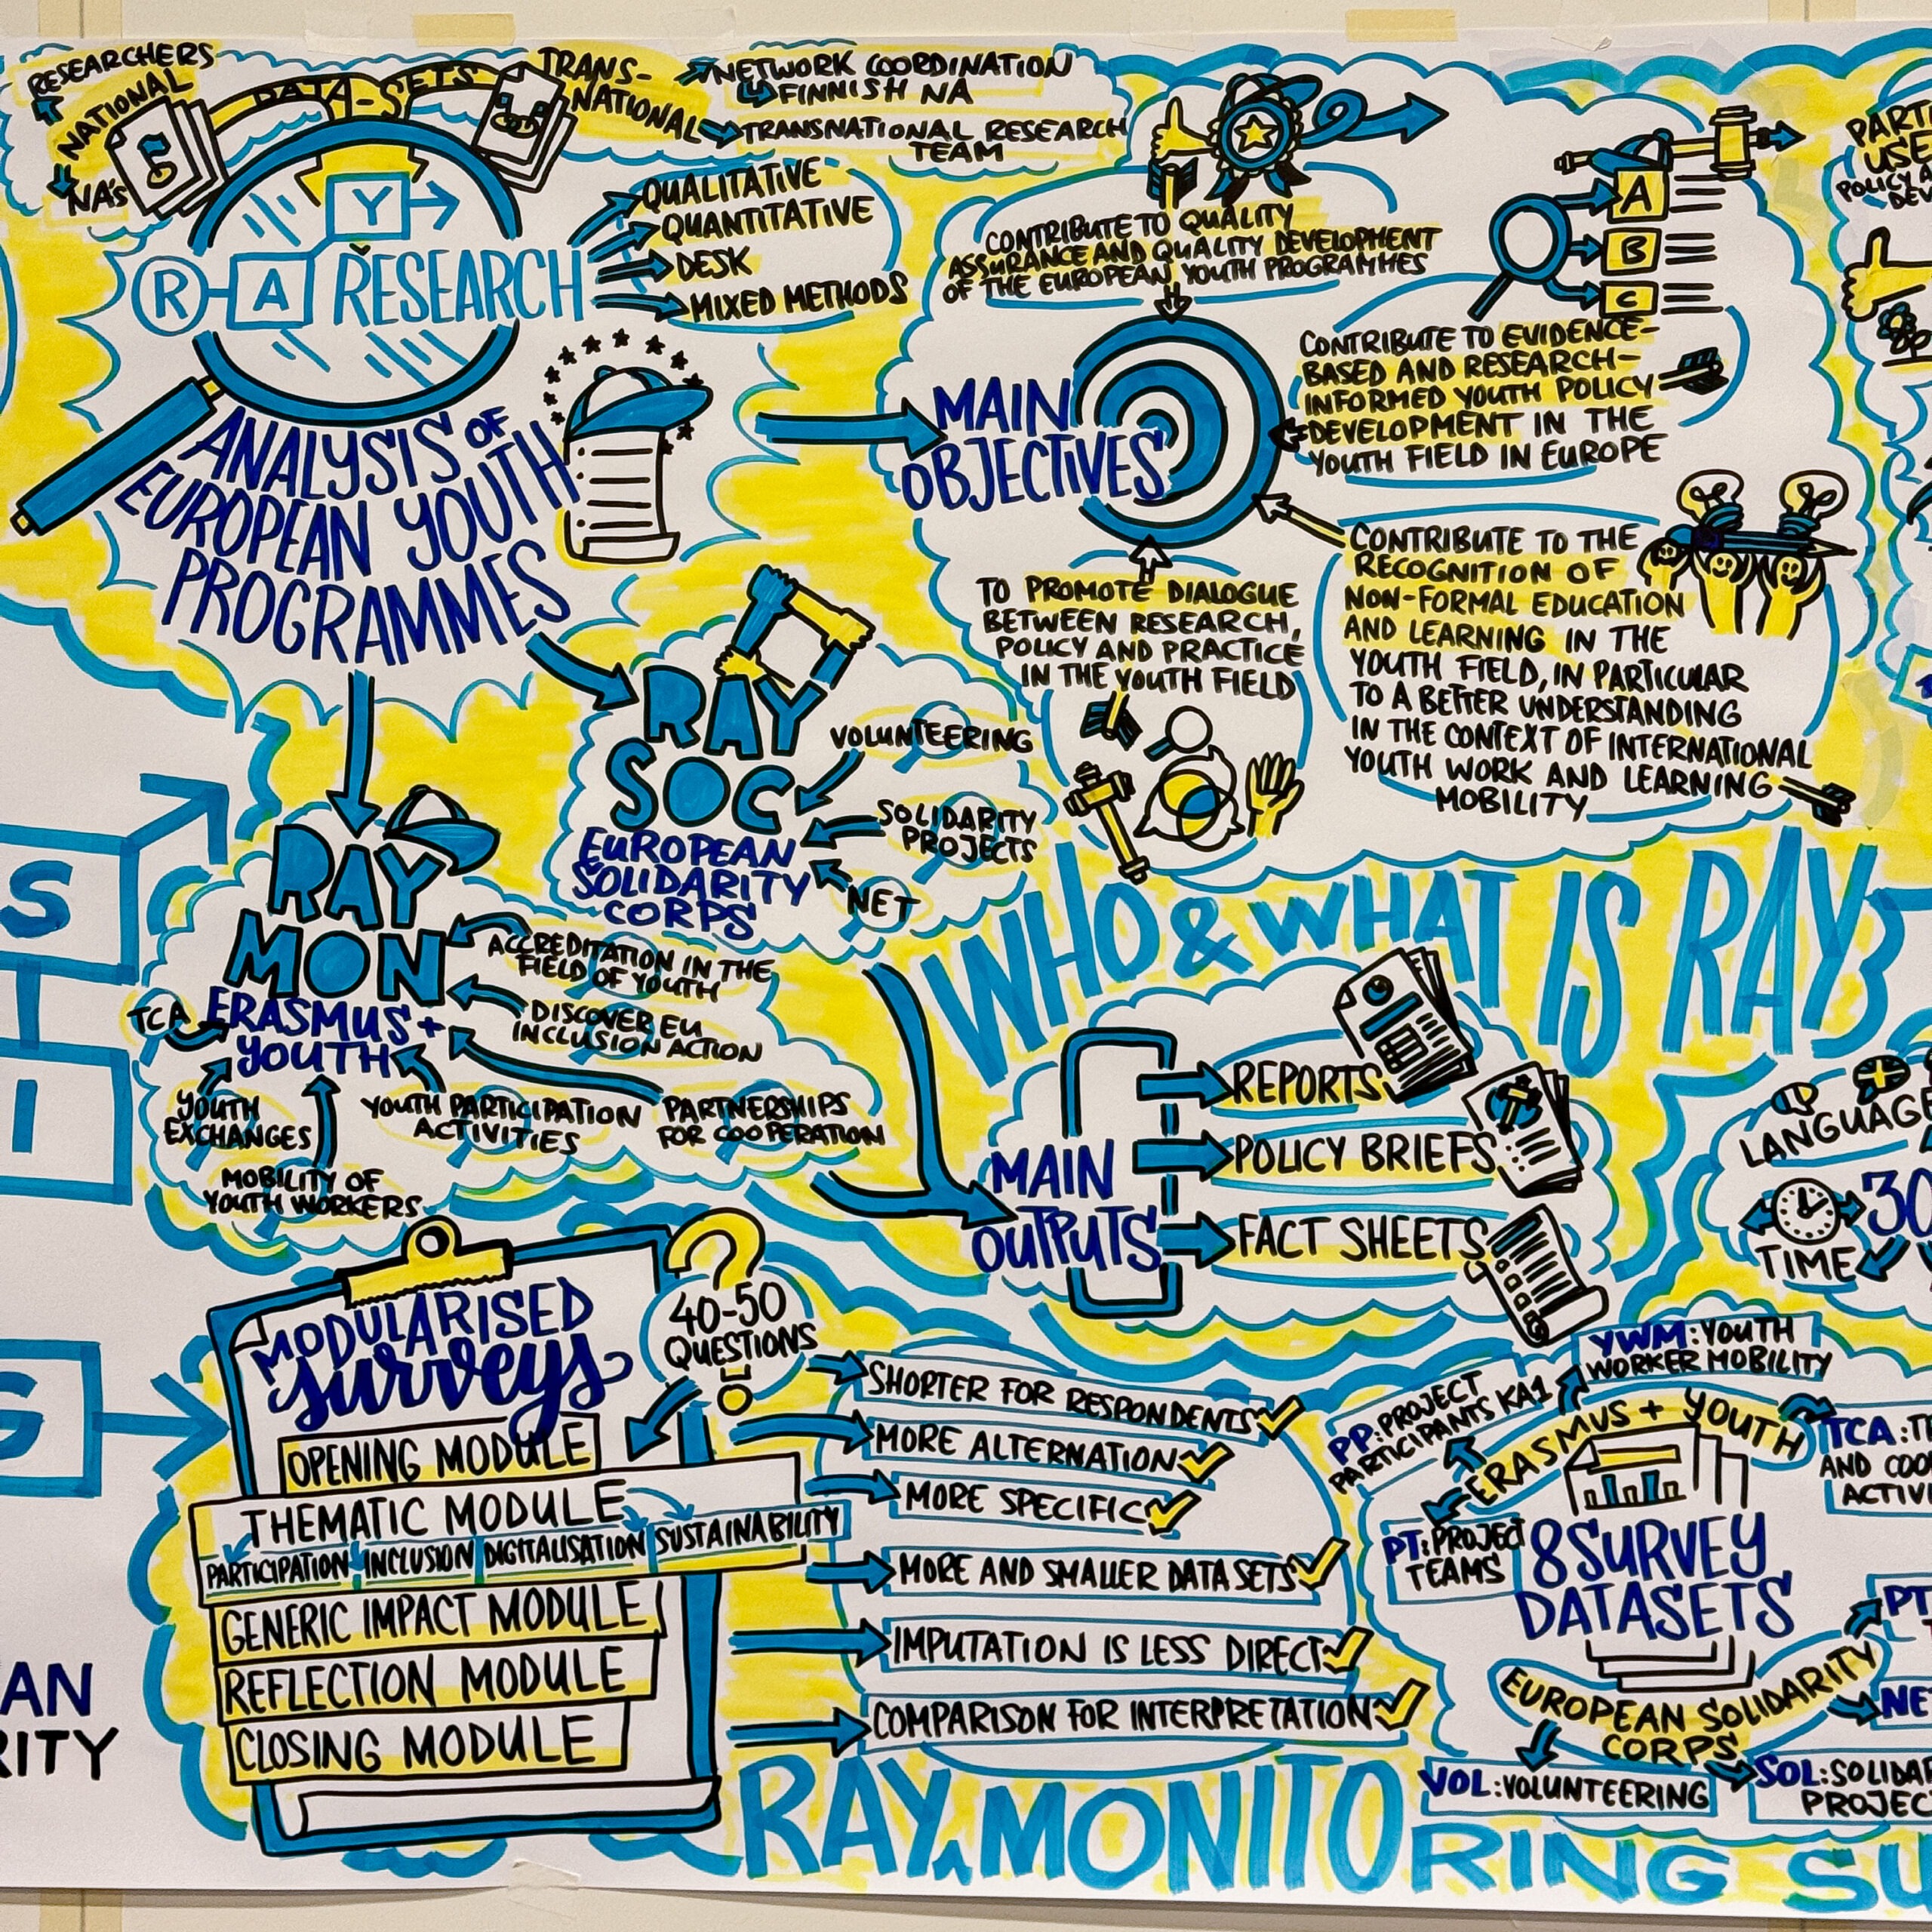 RESEARCHERS
NATIONAL
NA's
DATA-SETS
TRANS-
NATIONAL
NETWORK COORDINATION
FINNISH NA
TRANSNATIONAL RESEARCH
TEAM
Y
R A RESEARCH
QUALITATIVE
QUANTITATIVE
DESK
MIXED METHODS
ANALYSIS OF
EUROPEAN YOUTH
PROGRAMMES
CONTRIBUTE TO QUALITY
ASSURANCE AND QUALITY DEVELOPMENT
OF THE EUROPEAN YOUTH PROGRAMMES
A
B
C
MAIN
OBJECTIVES
CONTRIBUTE TO EVIDENCE-
BASED AND RESEARCH-
INFORMED YOUTH POLICY
DEVELOPMENT IN THE
YOUTH FIELD IN EUROPE
CONTRIBUTE TO THE
RECOGNITION OF
NON-FORMAL EDUCATION
AND LEARNING IN THE
YOUTH FIELD, IN PARTICULAR
TO A BETTER UNDERSTANDING
IN THE CONTEXT OF INTERNATIONAL
YOUTH WORK AND LEARNING
MOBILITY
TO PROMOTE DIALOGUE
BETWEEN RESEARCH,
POLICY AND PRACTICE
IN THE YOUTH FIELD
RAY
SOC
EUROPEAN
SOLIDARITY
CORPS
VOLUNTEERING
SOLIDARITY
PROJECTS
NET
RAY
MON
ERASMUS+
YOUTH
TCA
ACCREDITATION IN THE
FIELD OF YOUTH
DISCOVER EU
INCLUSION ACTION
YOUTH
EXCHANGES
YOUTH PARTICIPATION
ACTIVITIES
PARTNERSHIPS
FOR COOPERATION
MOBILITY OF
YOUTH WORKERS
WHO & WHAT IS RAY?
MAIN
OUTPUTS
REPORTS
POLICY BRIEFS
FACT SHEETS
LANGUAGE
30
TIME
S
I
G
AN
RITY
MODULARISED
surveys
40-50
QUESTIONS
OPENING MODULE
THEMATIC MODULE
PARTICIPATION INCLUSION DIGITALISATION SUSTAINABILITY
GENERIC IMPACT MODULE
REFLECTION MODULE
CLOSING MODULE
SHORTER FOR RESPONDENTS
MORE ALTERNATION
MORE SPECIFIC
MORE AND SMALLER DATA SETS
IMPUTATION IS LESS DIRECT
COMPARISON FOR INTERPRETATION
YWM: YOUTH
WORKER MOBILITY
PP: PROJECT
PARTICIPANTS KA1
ERASMUS + YOUTH
TCA:
AND COO
ACTIVI
PT: PROJECT
TEAMS
8 SURVEY
DATASETS
PT
EUROPEAN SOLIDARITY
CORPS
NE
VOL: VOLUNTEERING
SOL: SOLIDAR
PROJEC
RAY MONITORING SU